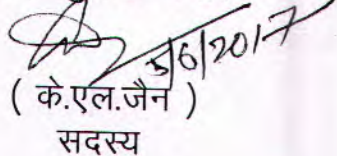 5/6/2017
( के.एल.जैन )
सदस्य